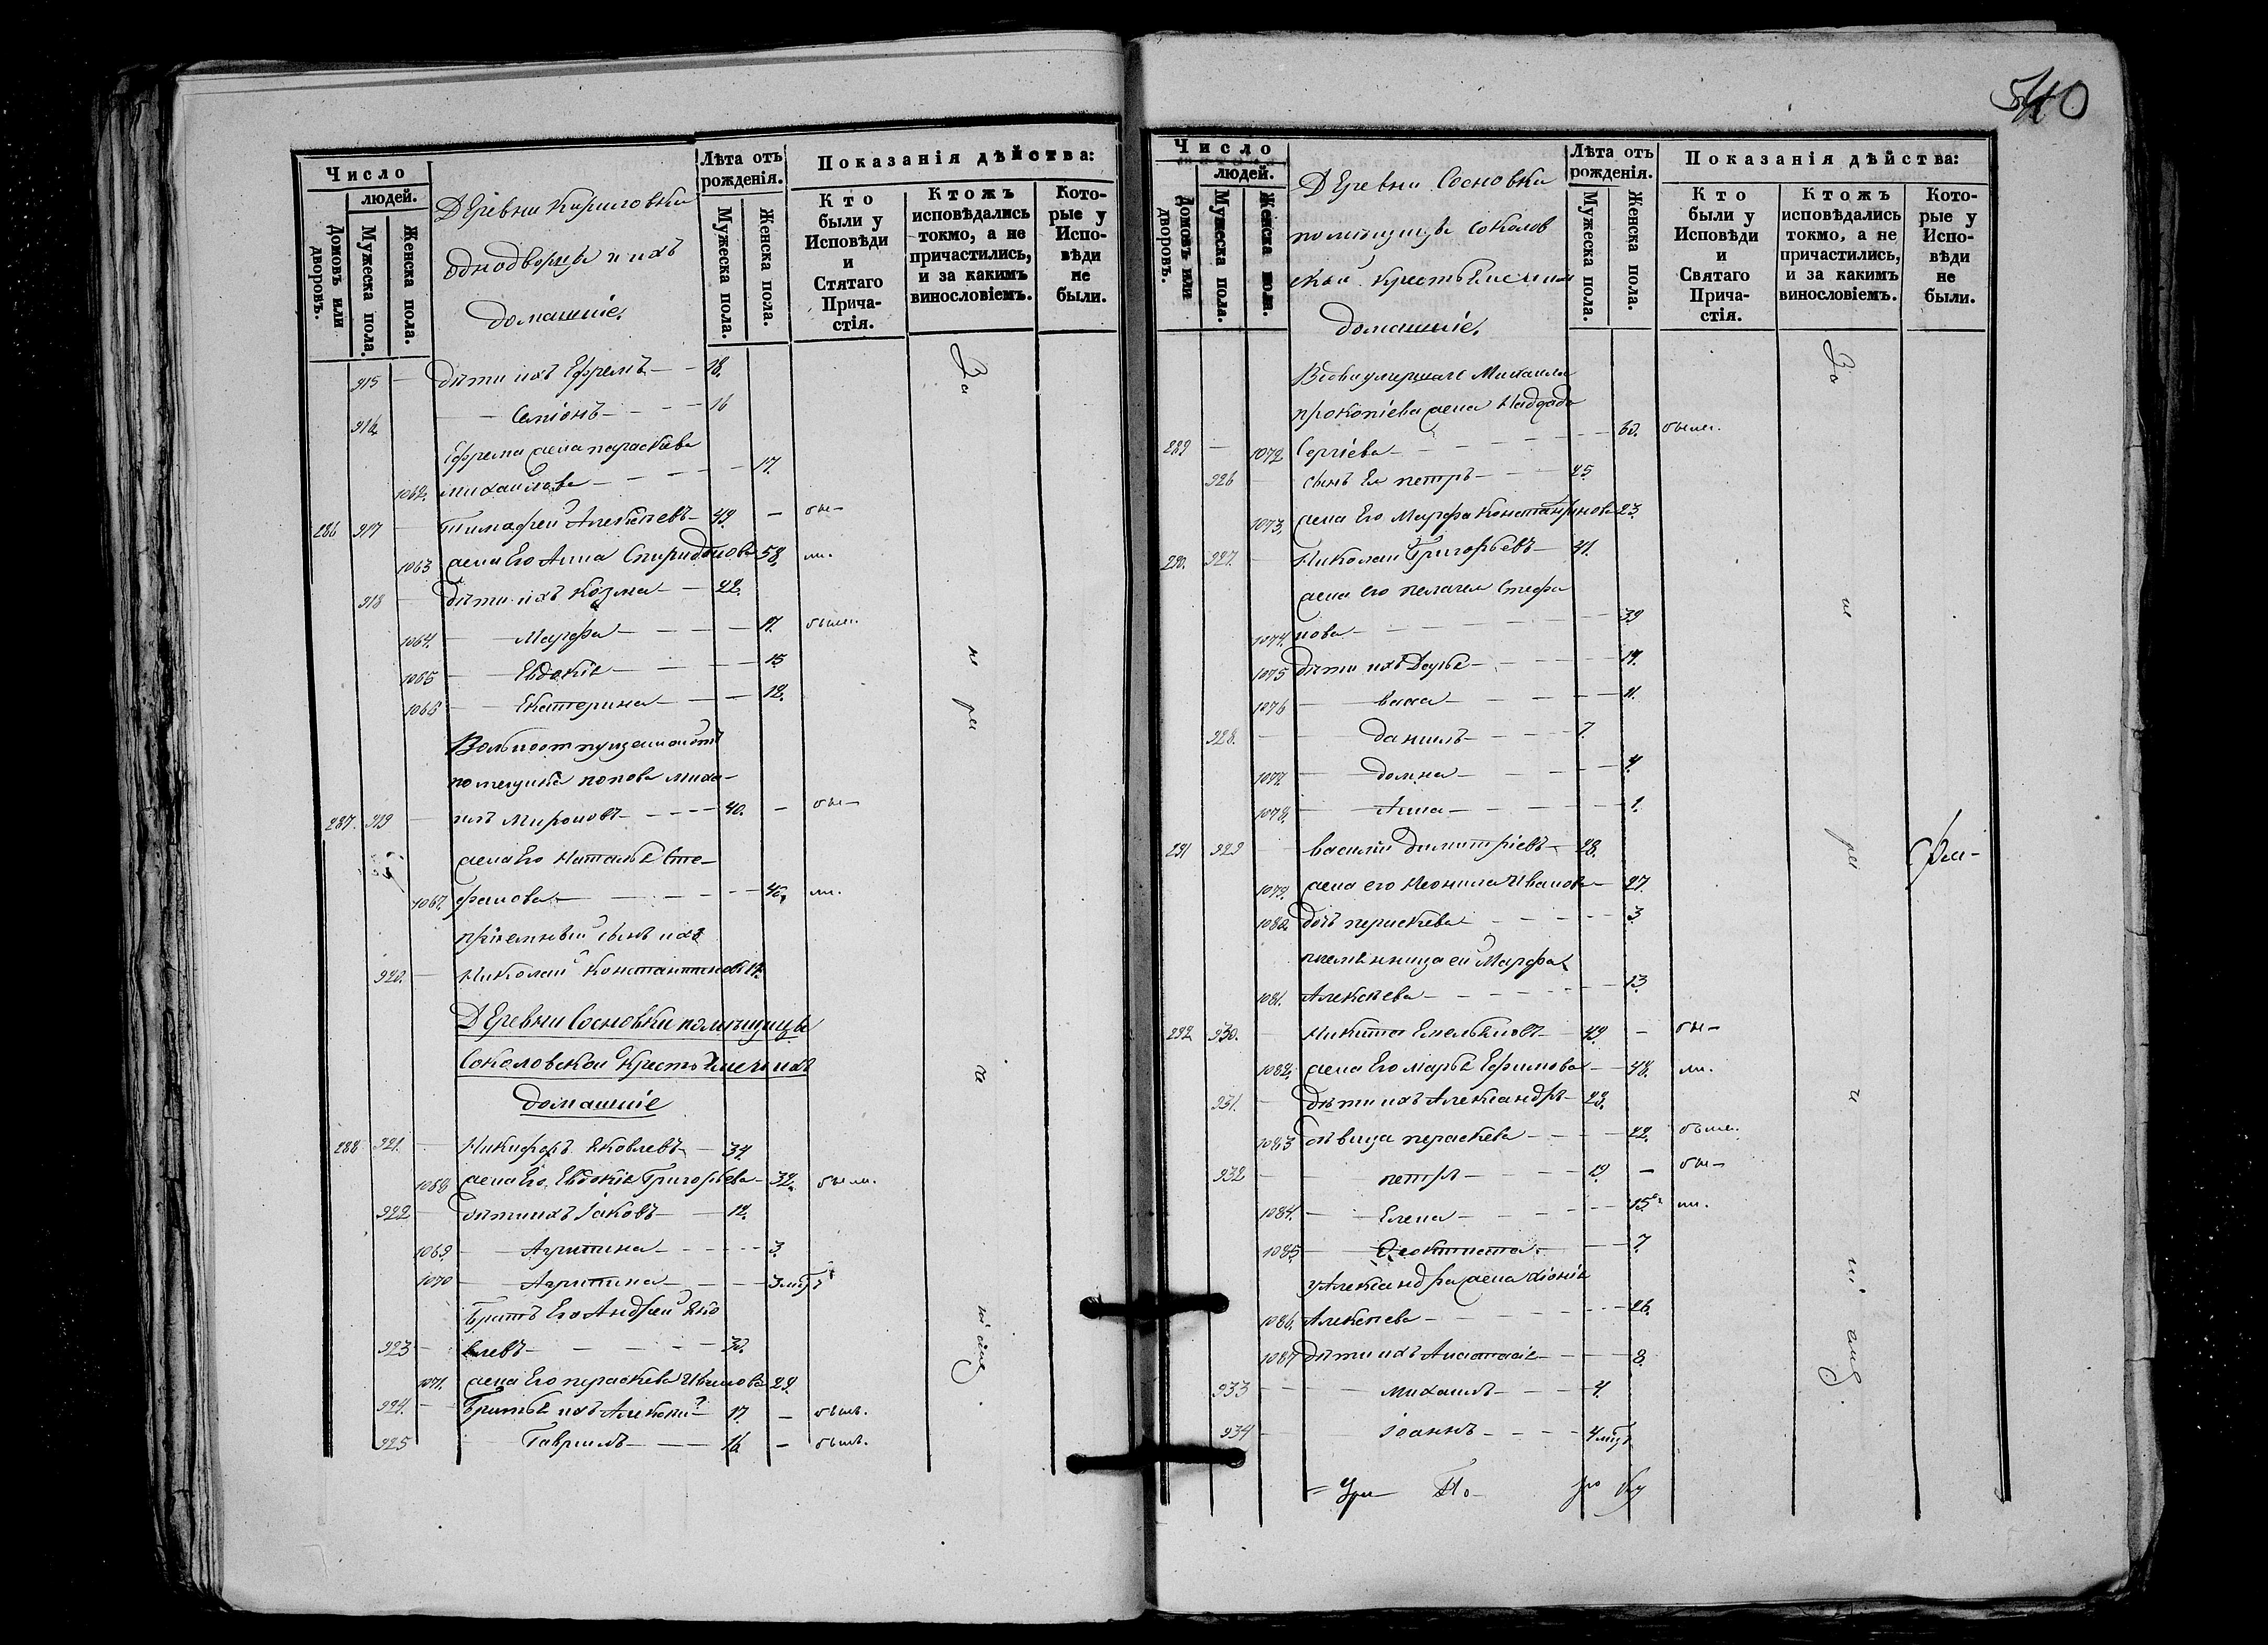 540
Число
людей.
Домовъ или дворовъ.
Мужеска пола.
Женска пола.
Деревни Кириловки
однодворцы и ихъ
домашніе.
Лѣта отъ рожденія.
Мужеска пола.
Женска пола.
Показанія дѣйства:
Кто были у Исповѣди и Стятаго Причастія.
Ктожъ исповѣдались токмо, а не причастились, и за какимъ винословіемъ.
Которые у Исповѣди не были.
915 — дѣти ихъ Ефремъ — 18.
916 — Симіонъ — 16
Ефрема жена параскева
1062. михаилова — 17.
286 917 — Тимофей Алексѣевъ — 49. — бы-
1063 жена Его Анна Спиридонова 58. ли.
918 — дѣти ихъ Козма — 22.
1064. — Марфа — 17. были.
1065 — Евдокія — 15
1066 — Екатерина — 12.
Вольноотпущенной отъ
помещика попова миха-
287. 919 — илъ Мироновъ — 40. — бы-
жена Его Наталья Сте-
1067. фанова — 40. ли.
пріемной сынъ ихъ
920. — Николай Константиновъ 14.
Деревни Сосновки помѣщицы
Соколовской Крестьяне и ихъ
домашніе
288 921. — Никифоръ Яковлевъ — 34.
1068 жена Его Евдокія Григорьева — 32. были.
922 — дѣти ихъ Іаковъ — 12.
1069. — Агрипина — 3.
1070 — Агрипина — 3 мѣс.
братъ Его Андрей Яко
923 — влевъ — 30.
1071. жена Его параскева Иванова 29.
924. — братья ихъ Алексѣй — 17. — былъ.
925 — Гавріилъ — 16 — былъ.
Число
людей.
Домовъ или дворовъ.
Мужеска пола.
Женска пола.
Деревни Сосновки
помѣщицы Соколов
ской крестьяне и их
домашніе.
Лѣта отъ рожденія.
Мужеска пола.
Женска пола.
Показанія дѣйства:
Кто были у Исповѣди и Святаго Причастія.
Ктожъ исповѣдались токмо, а не причастились, и за какимъ винословіемъ.
Которые у Исповѣди не были.
Вдова умершаго Михаила
прокопіева жена Надежда
289 — 1072 Сергіева — 60. были.
926 — сынъ Ея петръ — 25.
1073. жена Его Марфа Константинова 23.
290. 927. — Николай Григорьевъ — 41.
жена его пелагея Стефа
1074. нова — 39
1075 дѣти ихъ Дарья — 14.
1076 — васа — 11.
928. — данилъ — 7.
1077. — домна — 4.
1078. — Анна — 1.
291 929 — василій димитріевъ — 28.
1079. жена его Неонила Иванова — 27.
1080. дочь параскева — 3
племянница ей Марфа
1081. Алексѣева — 13.
292 930. — Никита Емельяновъ — 49. — бы-
1082. жена Его марья Ефимова — 48. ли.
931. — дѣти ихъ Александръ — 23.
1083 дѣвица параскева — 22. были.
932 — петръ — 19. — бы-
1084. — Елена — 15. ли.
1085 — Феоктиста — 7.
у Александра жена хіонія
1086. Алексѣева — 26.
1087 дѣти ихъ Анастасія — 8.
933 — михаилъ — 4.
934 — Іоаннъ — 4 мѣс.